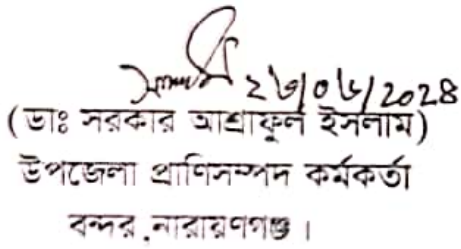 ২৬/০৬/২০২৪
(ডাঃ সরকার আশ্রাফুল ইসলাম)
উপজেলা প্রাণিসম্পদ কর্মকর্তা
বন্দর,নারায়ণগঞ্জ।